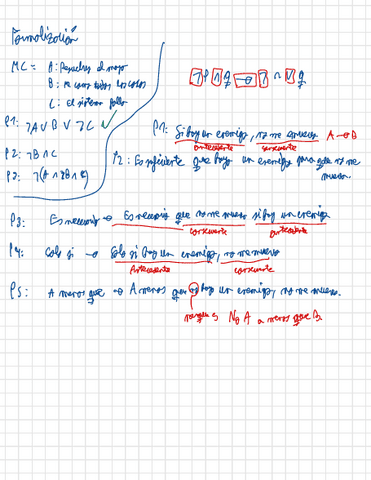 Formalización
MC = A: Resuelves el
B: Me como todos los
C: El sistema falla
P1: ¬A ∨ B ∨ ¬C ✓
P2: ¬B ∧ C
P3: ¬(A ∧ ¬B ∧
P1: Si hay un enemigo, no me muevo A → B
antecedente consecuente
P2: Es suficiente que haya un enemigo para que no me
mueva.
P3: Es necesario → Es necesario que no me mueva si hay un enemigo
consecuente antecedente
P4: Solo si → Solo si hay un enemigo, no me muevo
Antecedente consecuente
P5: A menos que → A menos que no haya un enemigo, no me muevo.
No A a menos que B.